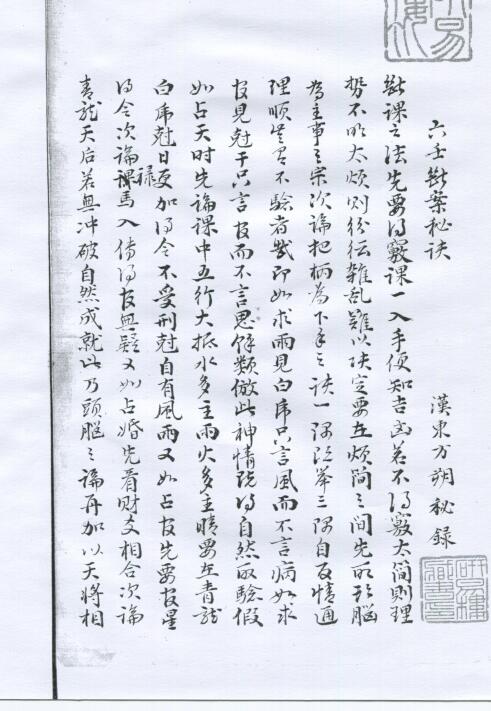 六壬斷案秘诀
漢東方朔秘录
斷課之法先要得竅課一入手便知吉凶若不得竅太简則理
势不明太烦则纷纭雜乱难以诀定要在烦简之间先取头脑
為主事之宗次論把柄為下手之诀一隅既举三隅自反情通
理順岂有不驗者哉即如求雨見白虎只言風而不言病如求
官見尅干只言官而不言鬼餘類倣此神情既得自然取驗假
如占天时先論課中五行大抵水多主雨火多主晴要在青龍
白虎尅日更加得令不受刑尅自有風雨又如占官先要官星
得令次論禄馬入传得官無疑又如占婚先看财爻相合次論
青龍天后若無冲破自然成就此乃頭脳之論再加以天將相